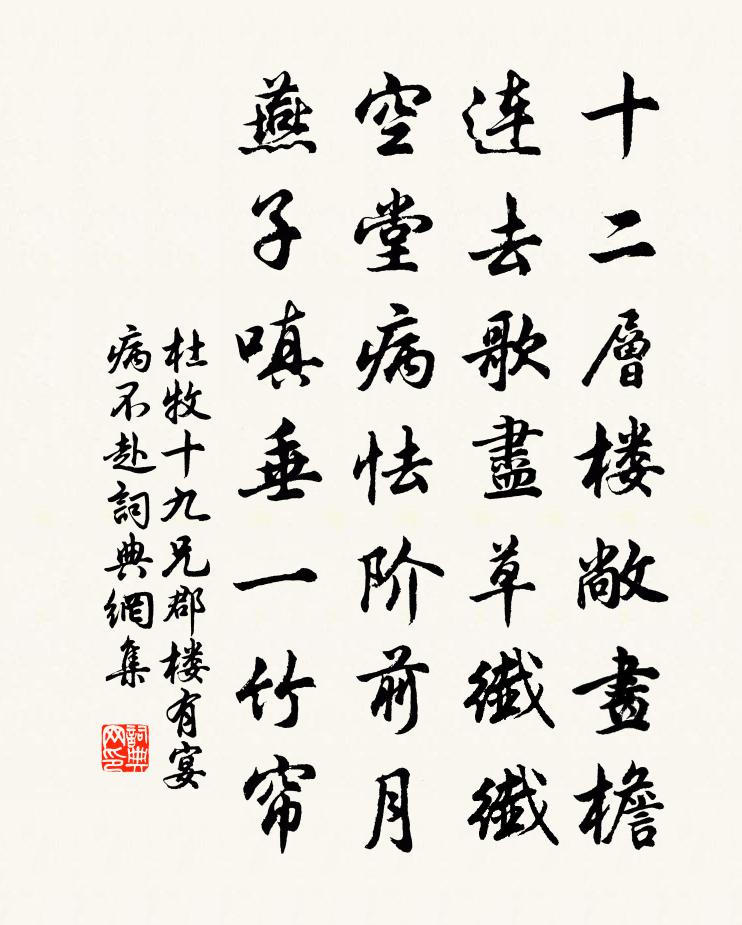 十二層楼敞畫檐
連去歌盡草纖纖
空堂病怯阶前月
燕子嗔垂一竹帘
杜牧十九兄郡楼有宴
病不赴詞典網集
詞典
网印